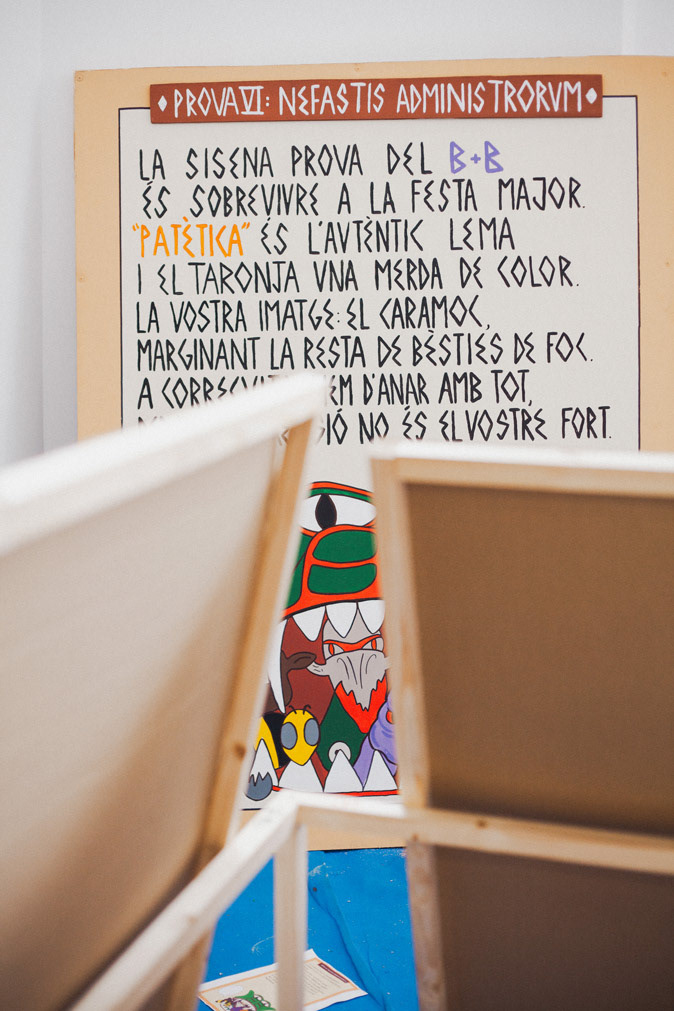 PROVA VI: NEFASTIS ADMINISTRORVM
LA SISENA PROVA DEL B+B
ÉS SOBREVIVRE A LA FESTA MAJOR.
"PATÈTICA" ÉS L'AVTÈNTIC LEMA
I EL TARONJA VNA MERDA DE COLOR.
LA VOSTRA IMATGE: EL CARAMOC,
MARGINANT LA RESTA DE BÈSTIES DE FOC.
A D'ANAR AMB TOT,
NO ÉS EL VOSTRE FORT.